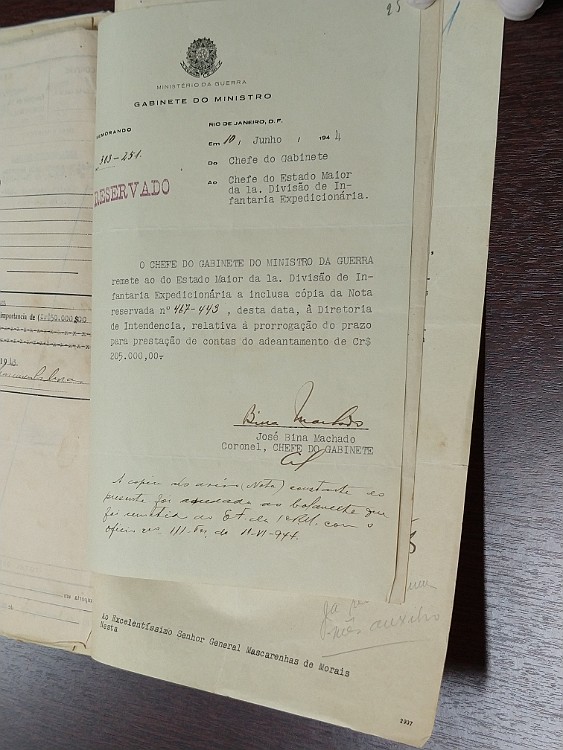 25
MINISTÉRIO DA GUERRA
GABINETE DO MINISTRO
RIO DE JANEIRO, D. F.
Em 10, Junho, 1944
Do Chefe do Gabinete
Ao Chefe do Estado Maior
da 1a. Divisão de In-
fantaria Expedicionária.
EMORANDO
303-251.
RESERVADO
O CHEFE DO GABINETE DO MINISTRO DA GUERRA
remete ao do Estado Maior da 1a. Divisão de In-
fantaria Expedicionária a inclusa cópia da Nota
reservada nº 467-443, desta data, à Diretoria
de Intendencia, relativa à prorrogação do prazo
para prestação de contas do adeantamento de Cr$
205.000,00.-
Bina Machado
José Bina Machado
Coronel, CHEFE DO GABINETE
A copia do aviso (Nota) constante do
presente foi
foi remettida ao com o
officio nº 111- de 11-VI-944.
mportancia de
Ao Excelentíssimo Senhor General Mascarenhas de Morais
Nesta
auxilio
2937